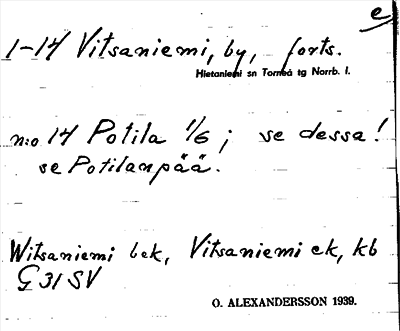 e
1-14 Vitsaniemi, by, forts.
Hietaniemi sn Torneå tg Norrb. l.
n:o 14 Potila 1/6 ; se dessa!
se Potilanpää.
Witsaniemi bek, Vitsaniemi ek, kb
G 31 SV
O. ALEXANDERSSON 1939.